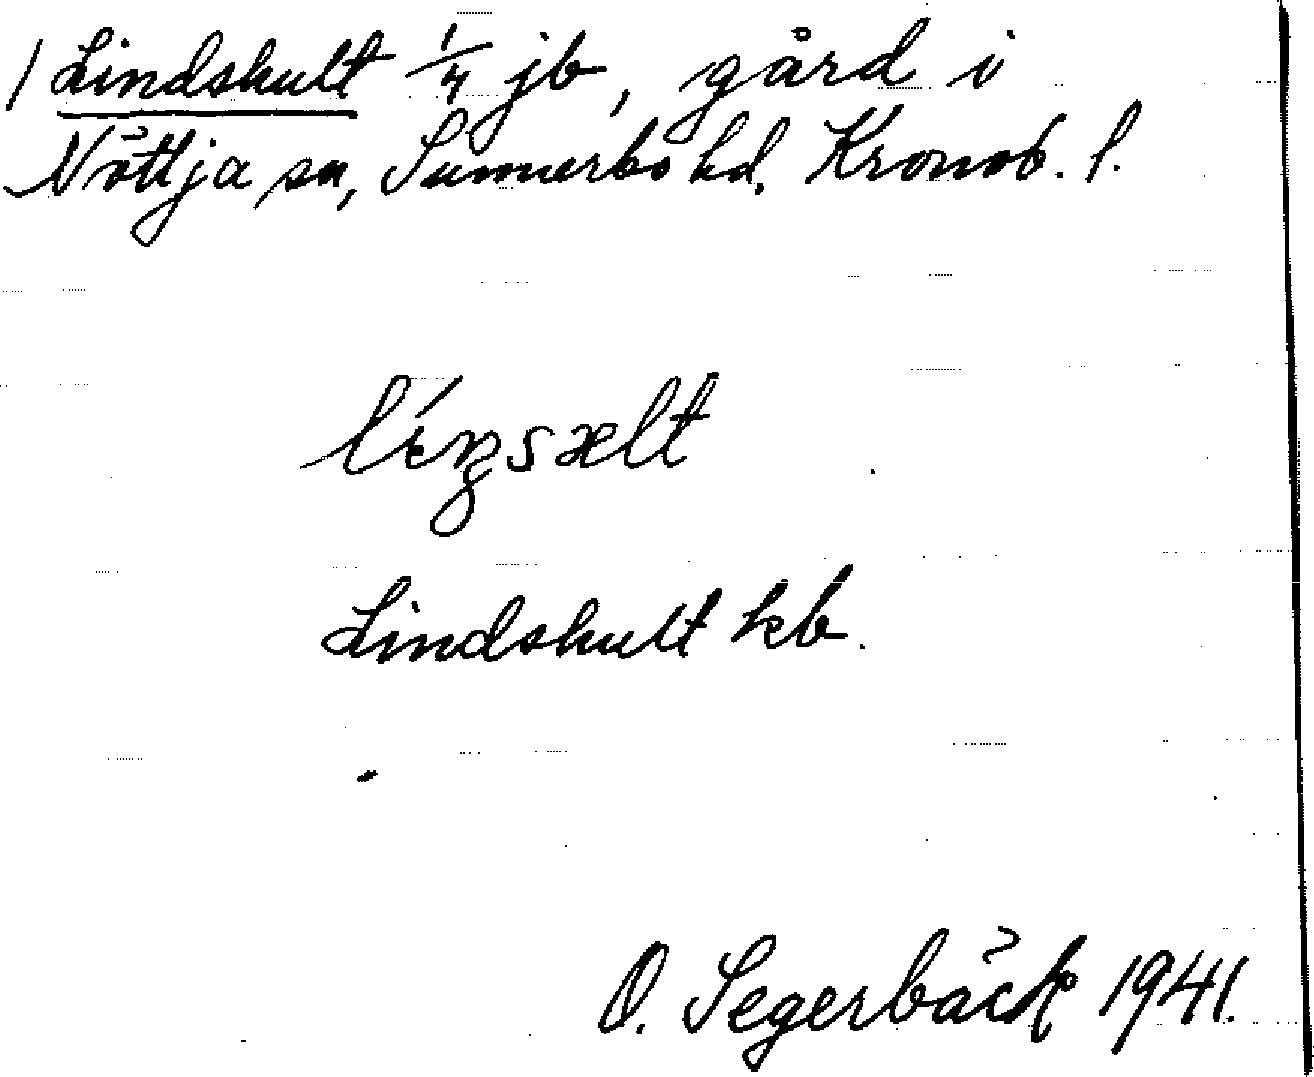 1 Lindshult 1/4 jb, gård i
Nöttja sn, Sunnerbo hd. Kronob. l.
Lindshult kb.
O. Segerbäck 1941.